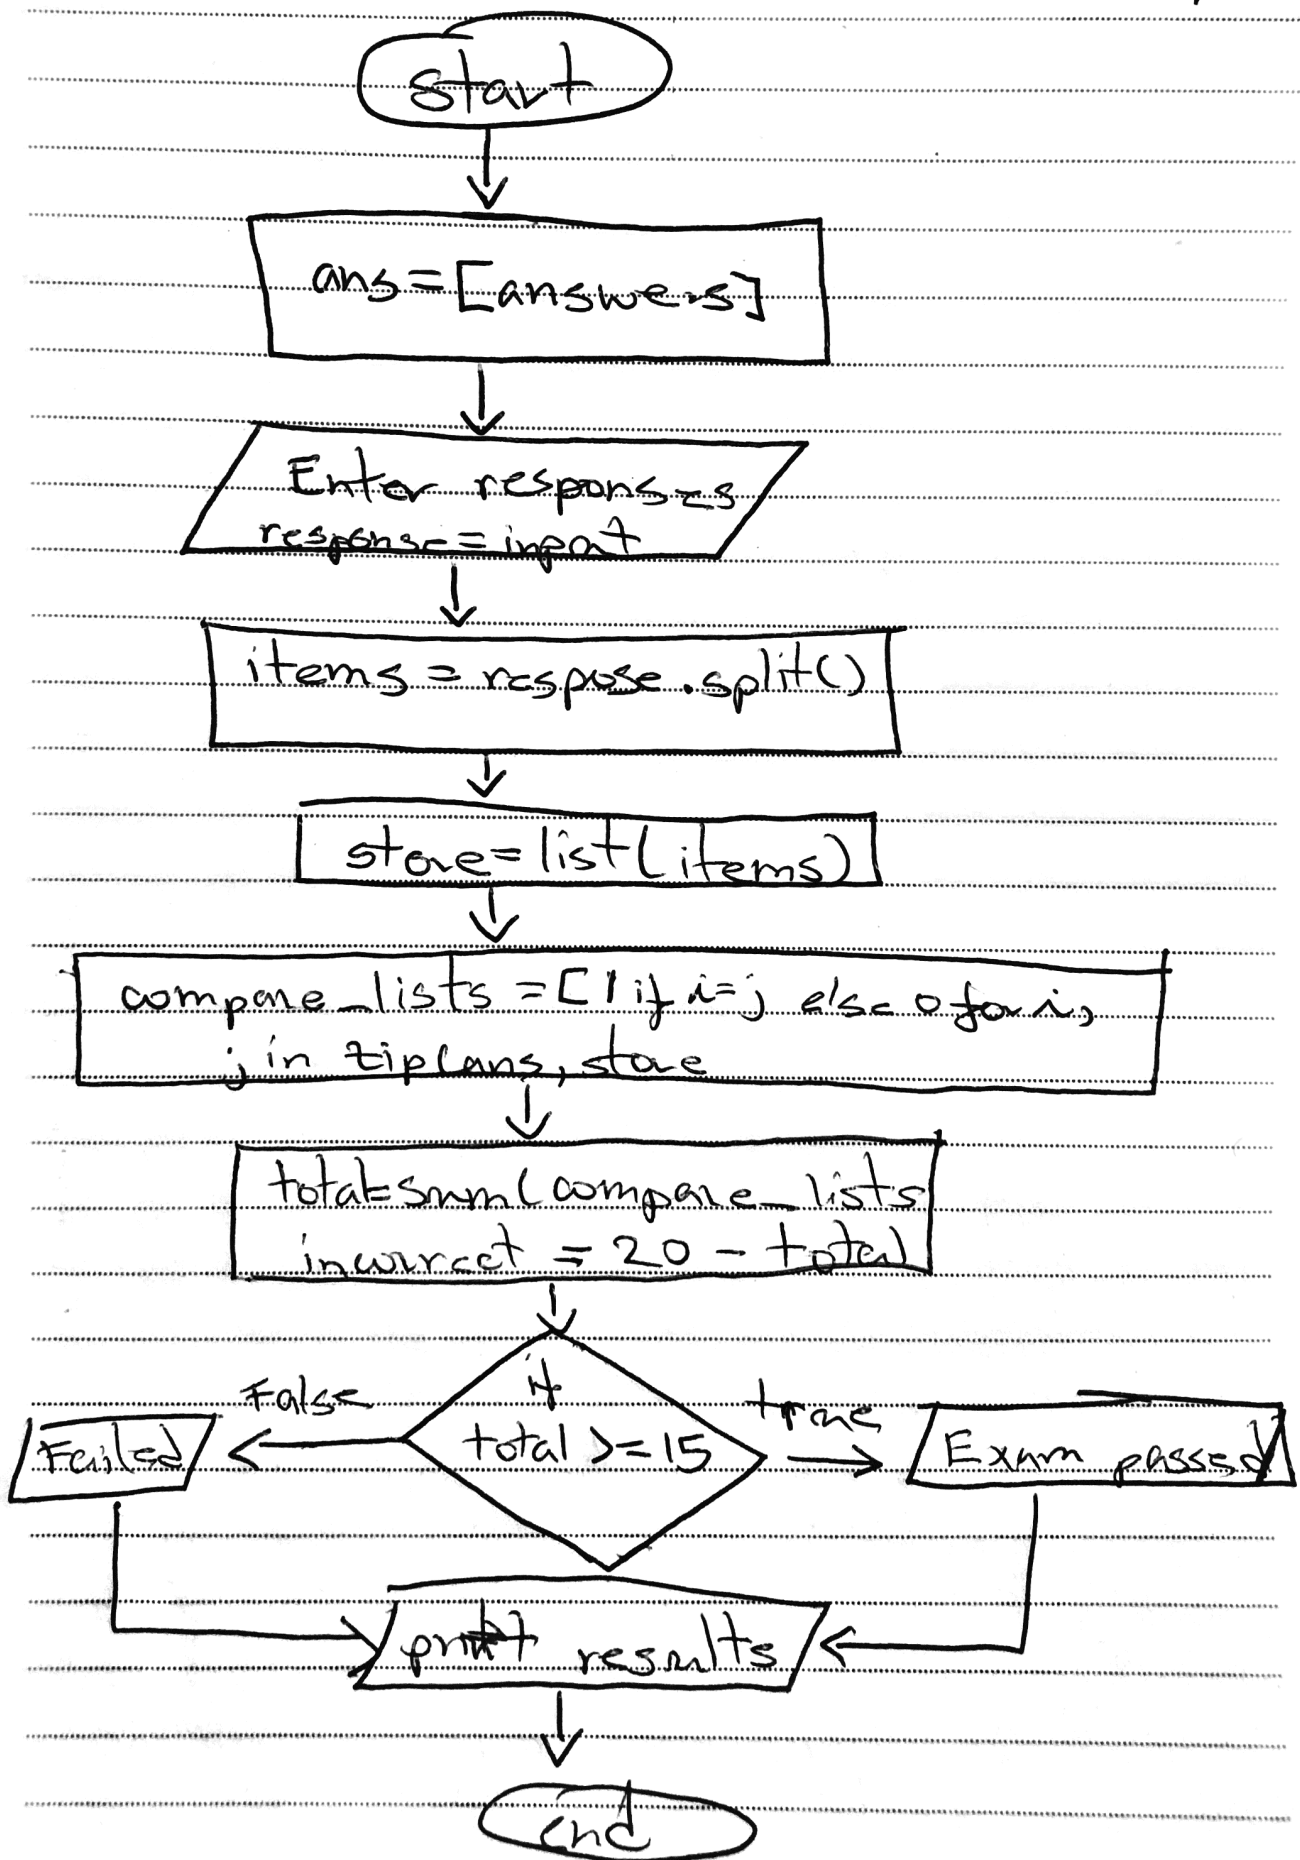 start
ans = [answers]
Enter responses
response = input
items = respose.split()
store = list(items)
compare_lists = [1 if i=j else 0 for i,
j in zip(ans, store
total = sum(compare_lists
incurrect = 20 - total
if
total >= 15
False
true
Failed
Exam passed
print results
end